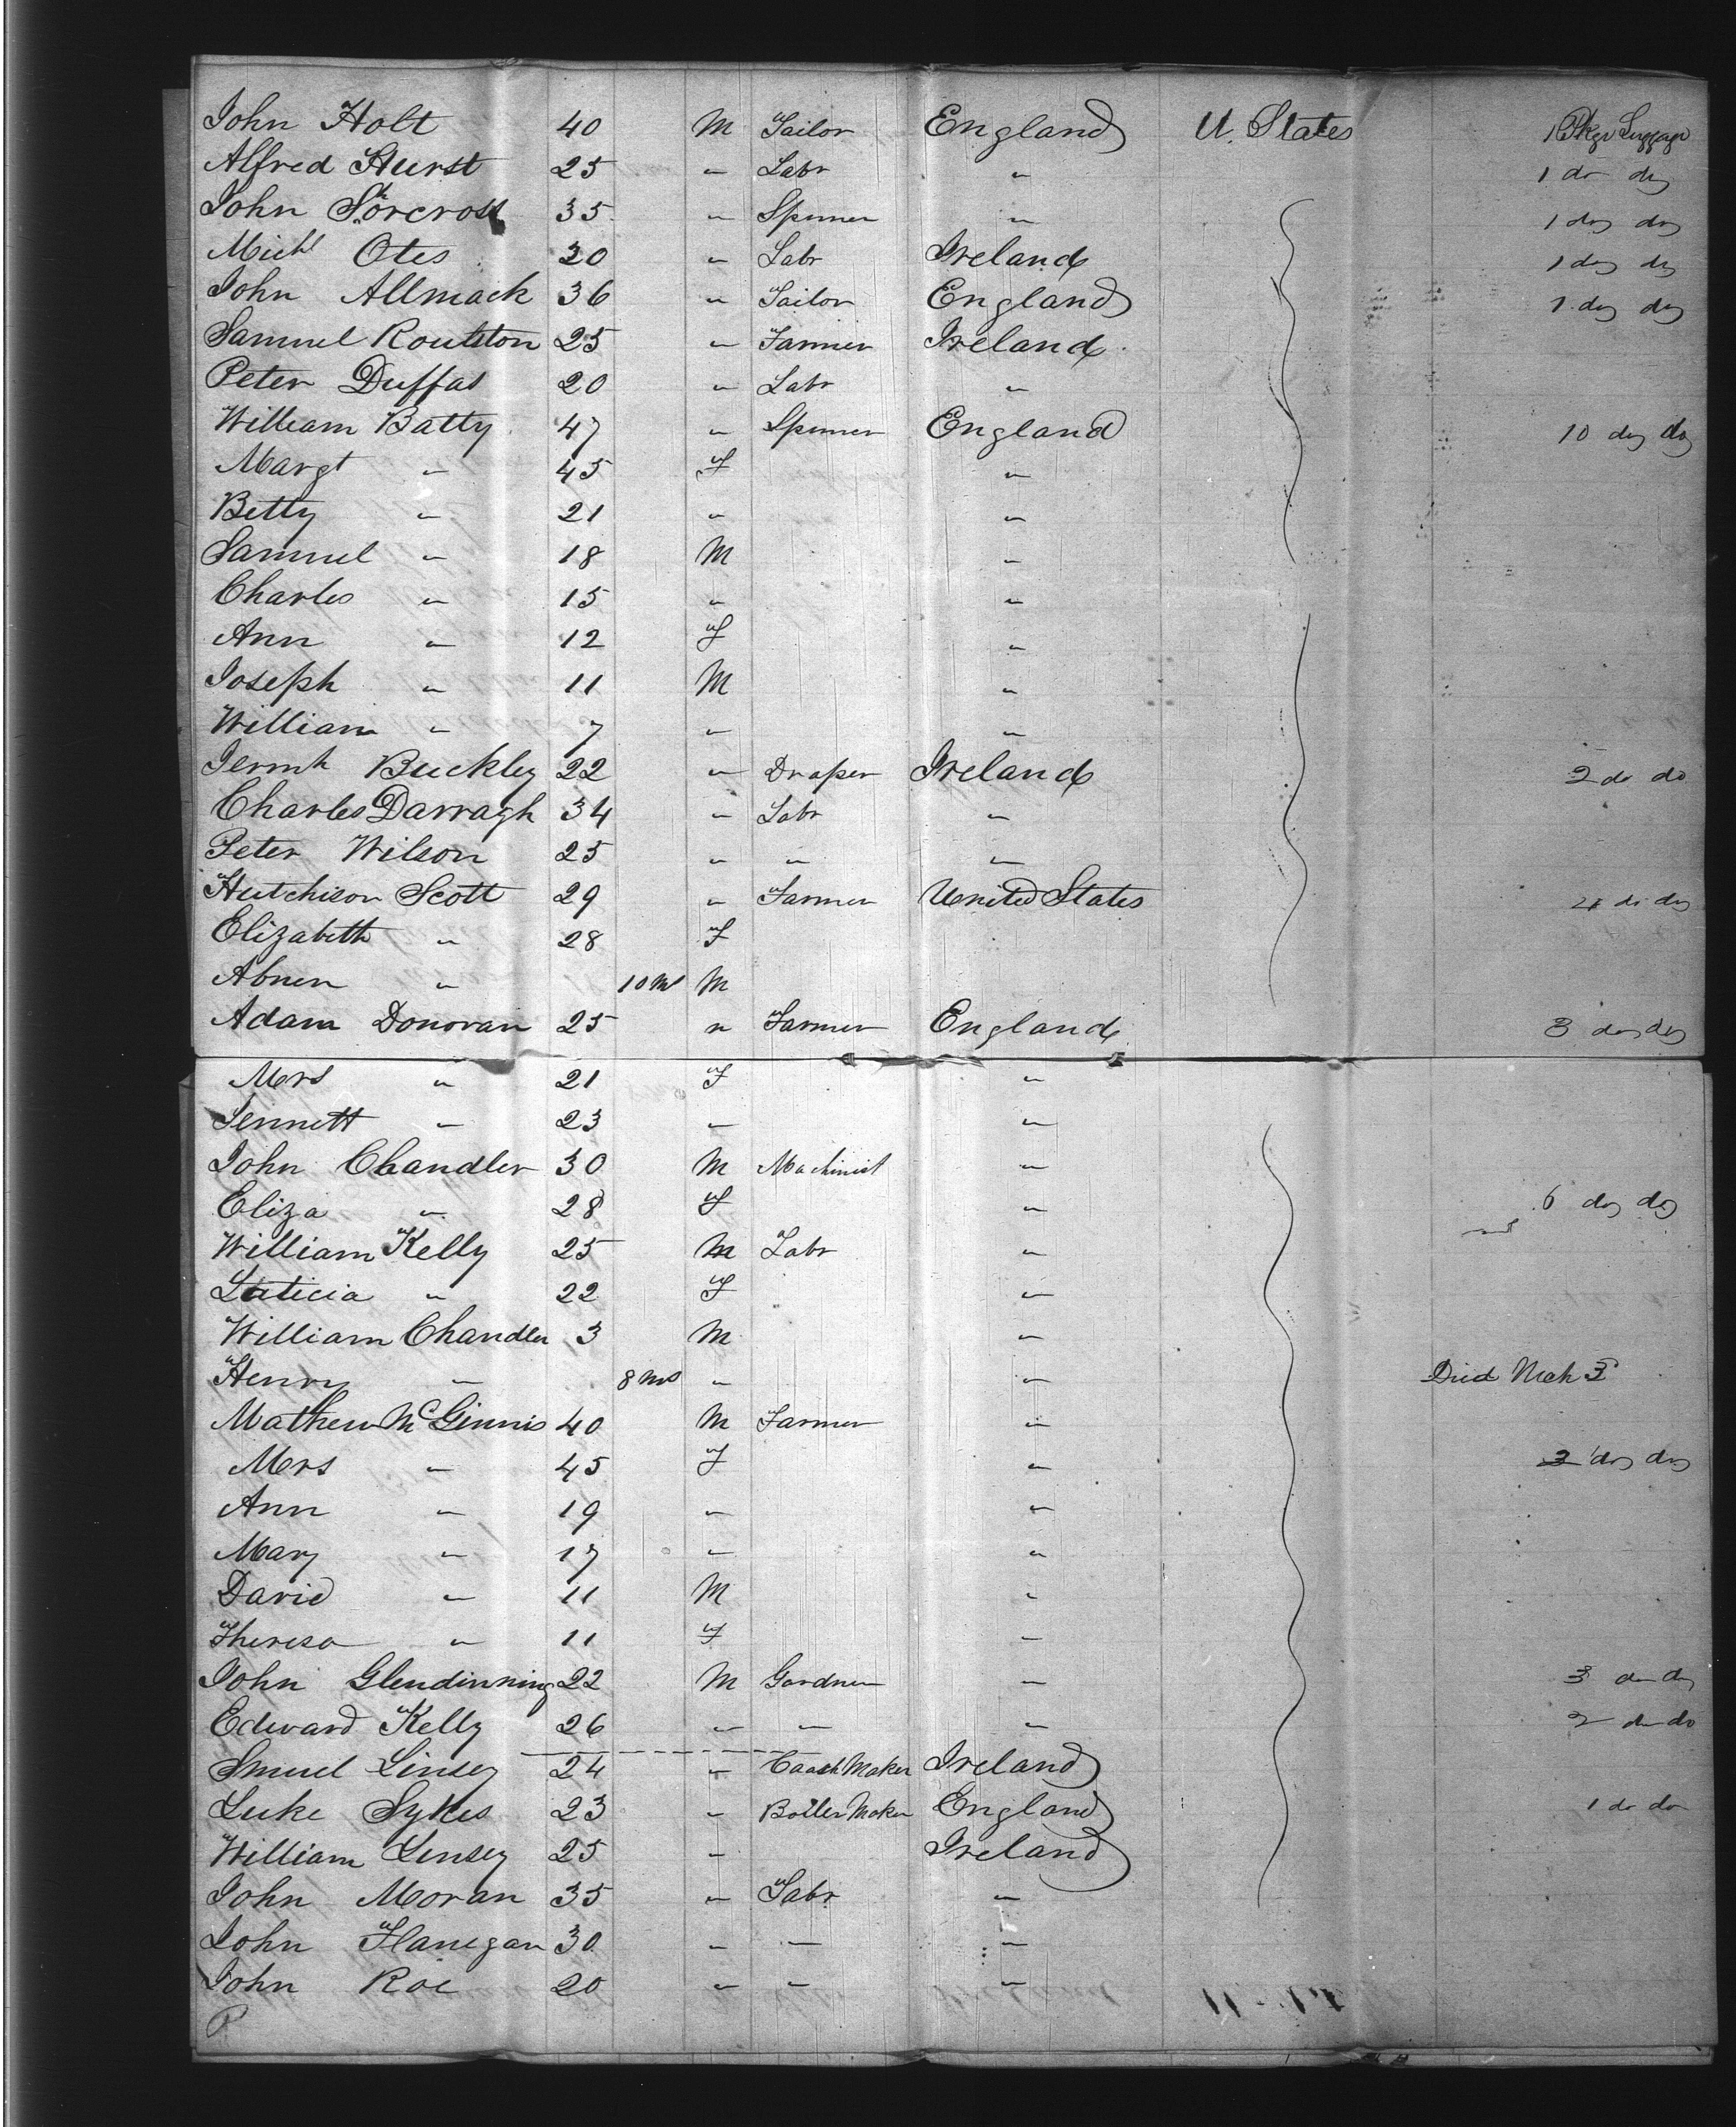 John Holt 40 M Tailor England U. States 1 Pkge Luggage
Alfred Hurst 25 " Labr " 1 do do
John 35 " Spinner " 1 do do
Michl Otes 20 " Labr Ireland 1 do do
John Allmack 36 " Tailor England 1 do do
Samuel Roulston 25 " Farmer Ireland
Peter Duffas 20 " Labr "
William Batty 47 " Spinner England 10 do do
Margt " 45 F "
Betty " 21 " "
Samuel " 18 M "
Charles " 15 " "
Ann " 12 F "
Joseph " 11 M "
William " 7 " "
Jermh Buckley 22 " Draper Ireland 2 do do
Charles Darragh 34 " Labr "
Peter Wilson 25 " " "
Hutchison Scott 29 " Farmer United States do do
Elizabeth " 28 F
Abner " 10 Ms M
Adam Donovan 25 " Farmer England 3 do do
Mers " 21 F "
Jennett " 23 " "
John Chandler 30 M Machinist "
Eliza " 28 F " 6 do do
William Kelly 25 M Labr "
Laticia " 22 F "
William Chandler 3 M "
Henry " 8 Ms " " Died Mch 3
Mathew McGinnis 40 M Farmer "
Mers " 45 F " 3 do do
Ann " 19 " "
Mary " 17 " "
David " 11 M "
Theresa " 11 F "
John Glendinning 22 M Gardner " 3 do do
Edward Kelly 26 " " " 2 do do
Smuel Linsey 24 " Coach Maker Ireland
Luke Sykes 23 " Boiler Maker England 1 do do
William Linsey 25 " Ireland
John Moran 35 " Labr "
John Flanegan 30 " " "
John Roe 20 " " "
P